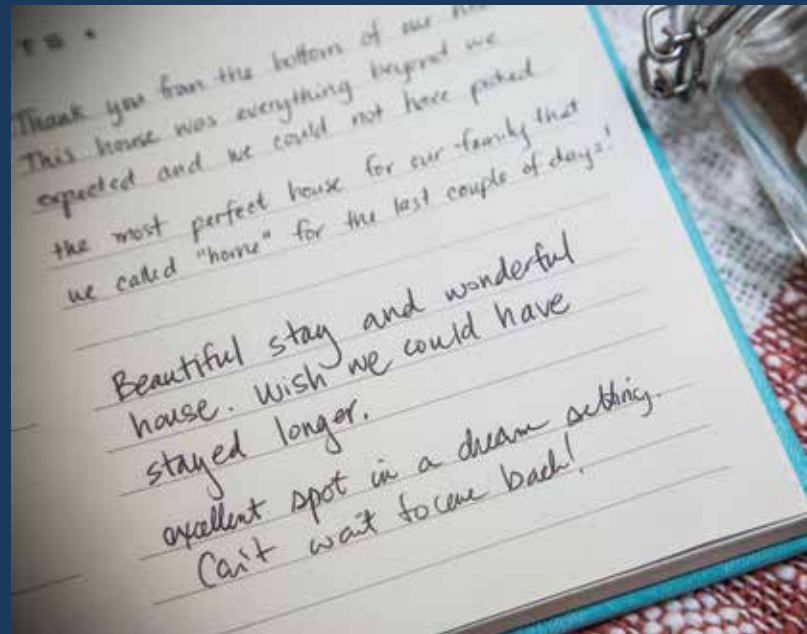 TS •
Thank you from the bottom of our
This house was everything beyond we
expected and we could not have picked
the most perfect house for our family that
we called "home" for the last couple of days!
Beautiful stay and wonderful
house. Wish we could have
stayed longer.
excellent spot in a dream setting.
Can't wait to come back!